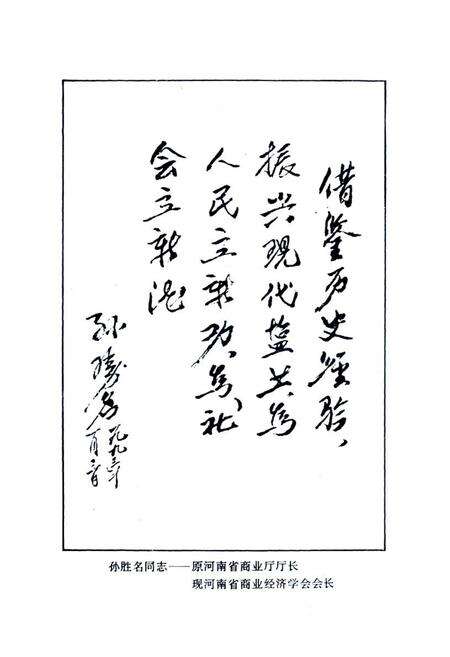 借鉴历史经验，
振兴现代盐业，为
人民立新功，为社
会立新
孙胜名
一九九三年
一月
孙胜名同志——原河南省商业厅厅长
现河南省商业经济学会会长